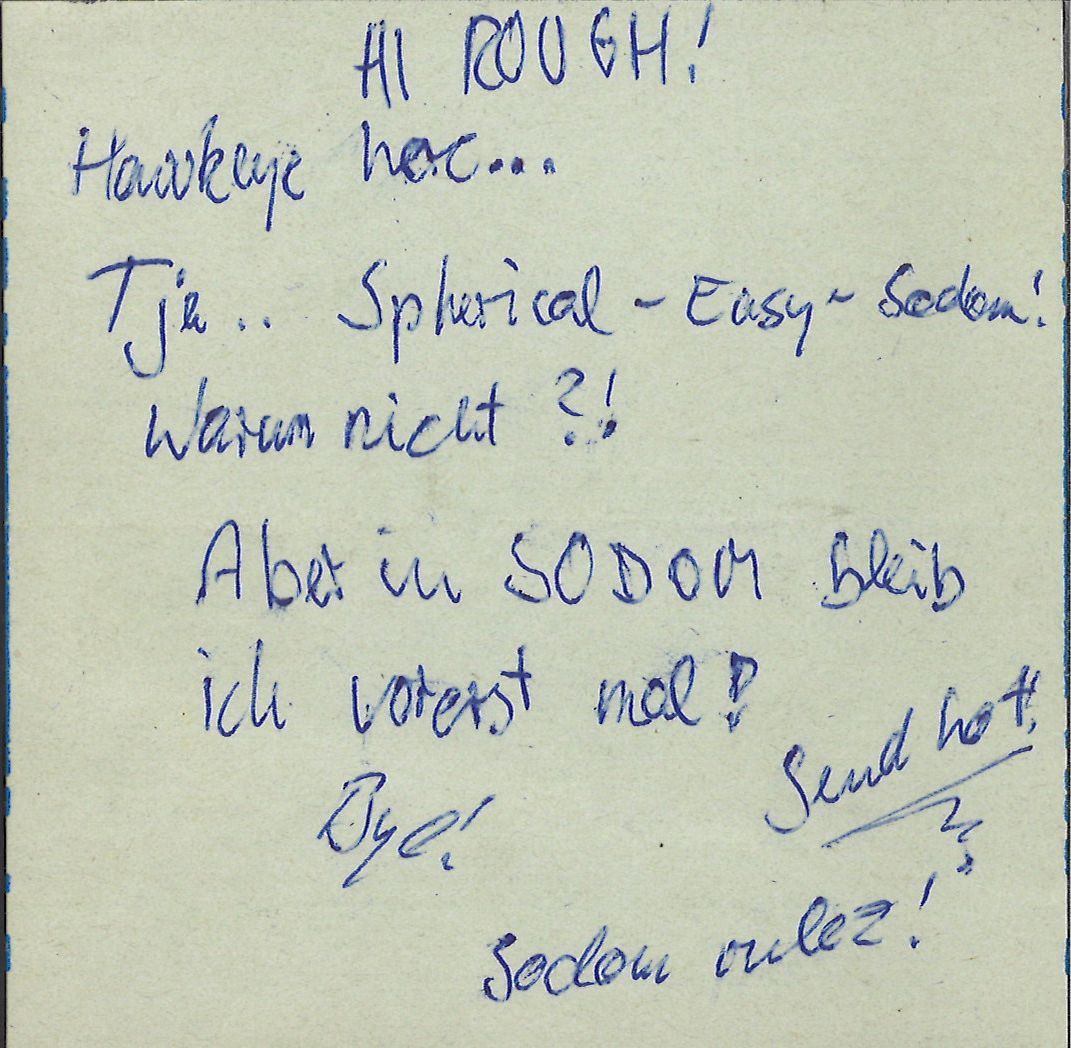 HI ROUGH!
Hawkeye here...
Tja.. Spherical - Easy - Sodom!
Warum nicht ?!
Aber in SODOM bleib
ich vorerst mal!
Send hot!
Bye!
Sodom rulez!